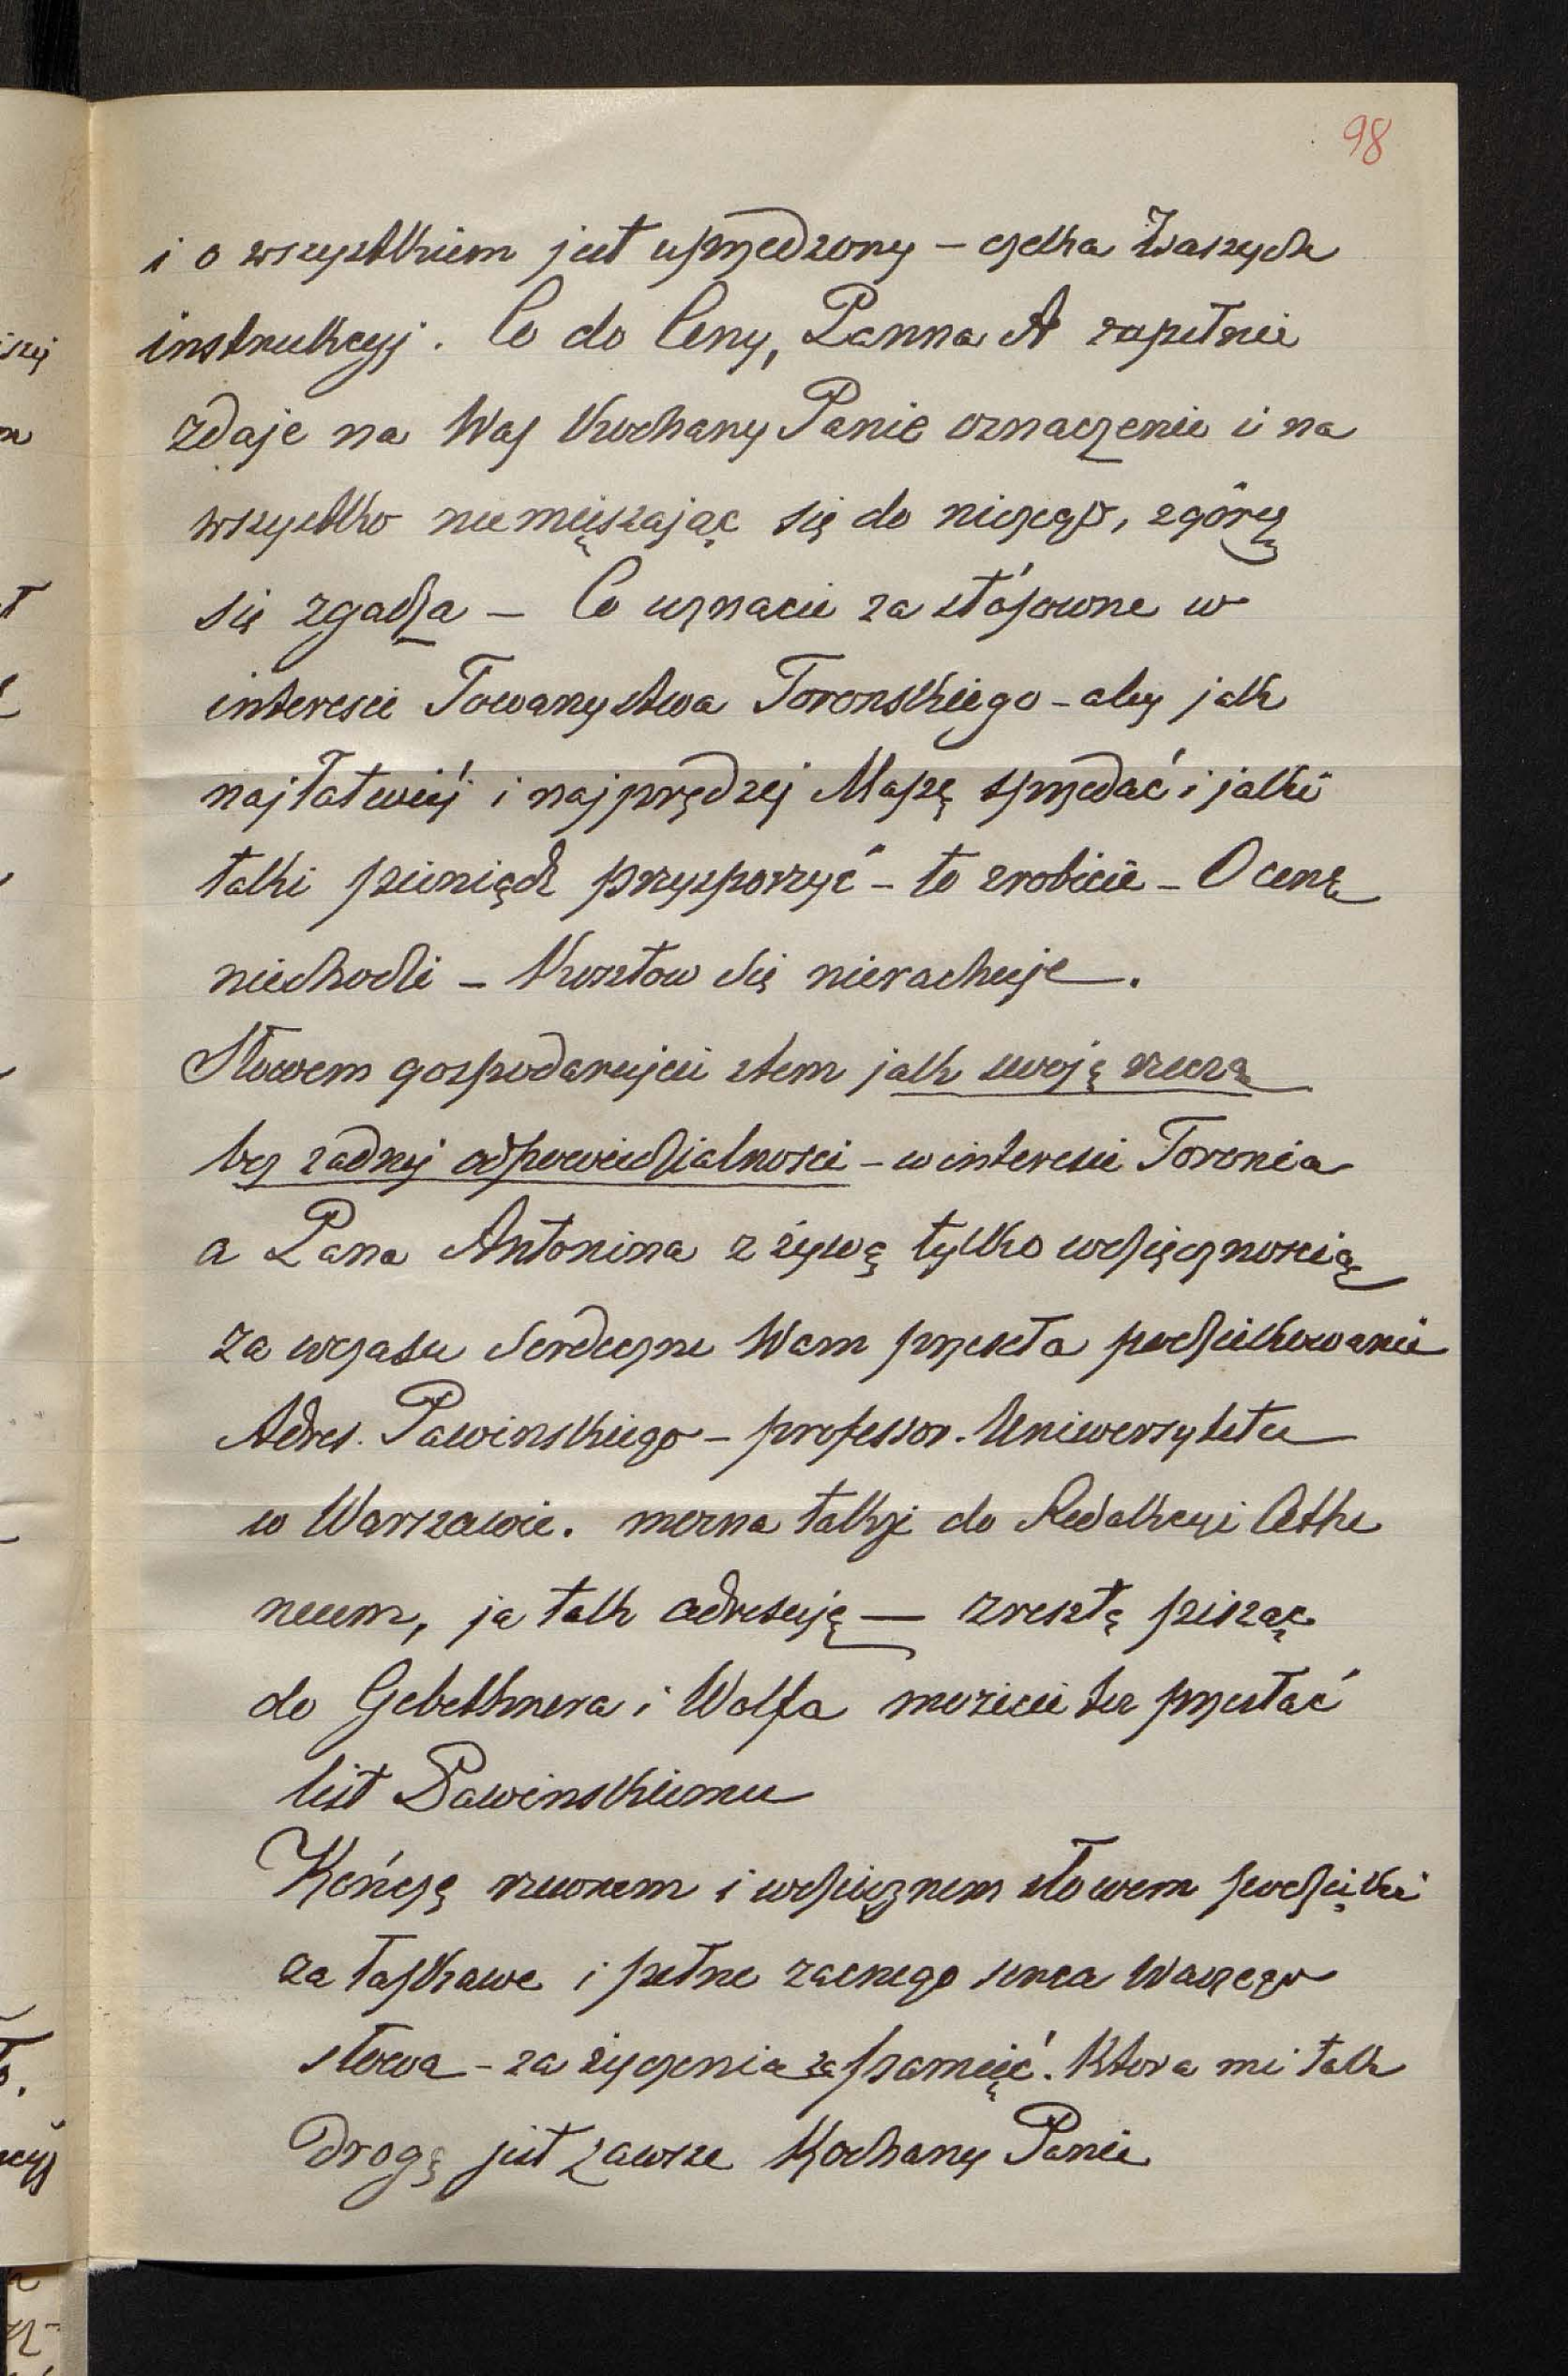 98
i o wszystkiem jest uprzedzony – czeka Waszych
instrukcyj. Co do Ceny, Panna A zupełnie
zdaje na Was Kochany Panie oznaczenie i na
wszystko niemięszając się do niczego, zgóry
się zgadza – Co uznacie za stósowne w
interesie Towarzystwa Toronskiego – aby jak
najłatwiéj i najprędzej Mapę sprzedać i jaki
taki pieniądz przysporzyć – to zrobicie – O cenę
niechodzi – Kosztow się nierachuje.
Słowem gospodarujcie stem jak swoją rzeczą
bez zadnej odpowiedzialnosci – w interesie Toronia
a Pana Antonina z zywą tylko wdzięcznoscią
za wczasu Serdeczne Wam przesła podziękowanie
Adres. Pawinskiego – professor. Uniwersytetu
w Warszawie. mozna takze do Redakcyi Athe
neum, ja tak adresuję — zresztą pisząc
do Gebethnera i Wolfa mozecie tu przesłać
list Pawinskiemu
Kończę rzewnem i wdzięcznem słowem podzięki
za łaskawe i pełne zacnego serca Waszego
słowa – za życzenia za pamięć. Ktora mi tak
Drogą jest zawsze Kochany Panie